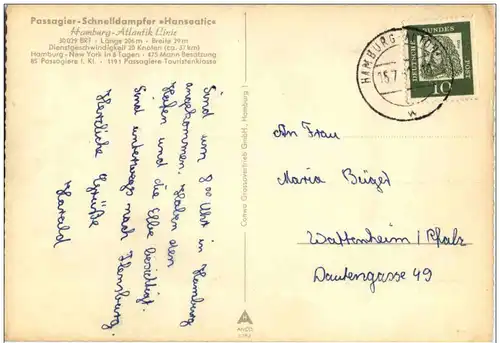 Passagier-Schnelldampfer »Hanseatic«
Hamburg-Atlantik Linie
30 029 BRT · Länge 206 m · Breite 29 m
Dienstgeschwindigkeit 20 Knoten (ca. 37 km)
Hamburg - New York in 8 Tagen · 475 Mann Besatzung
85 Passagiere I. Kl. · 1191 Passagiere Touristenklasse
Sind um 8⁰⁰ Uhr in Hamburg
angekommen. Haben den
Hafen und die Elbe besichtigt.
Sind unterwegs nach Flensburg.
Herzliche Grüße
Harald
Conwa Grossovertrieb GmbH, Hamburg 1
HAMBURG
15.7.
DEUTSCHE BUNDESPOST
10
An Frau
Maria Bürger
Wattenheim / Pfalz
Dautengasse 49